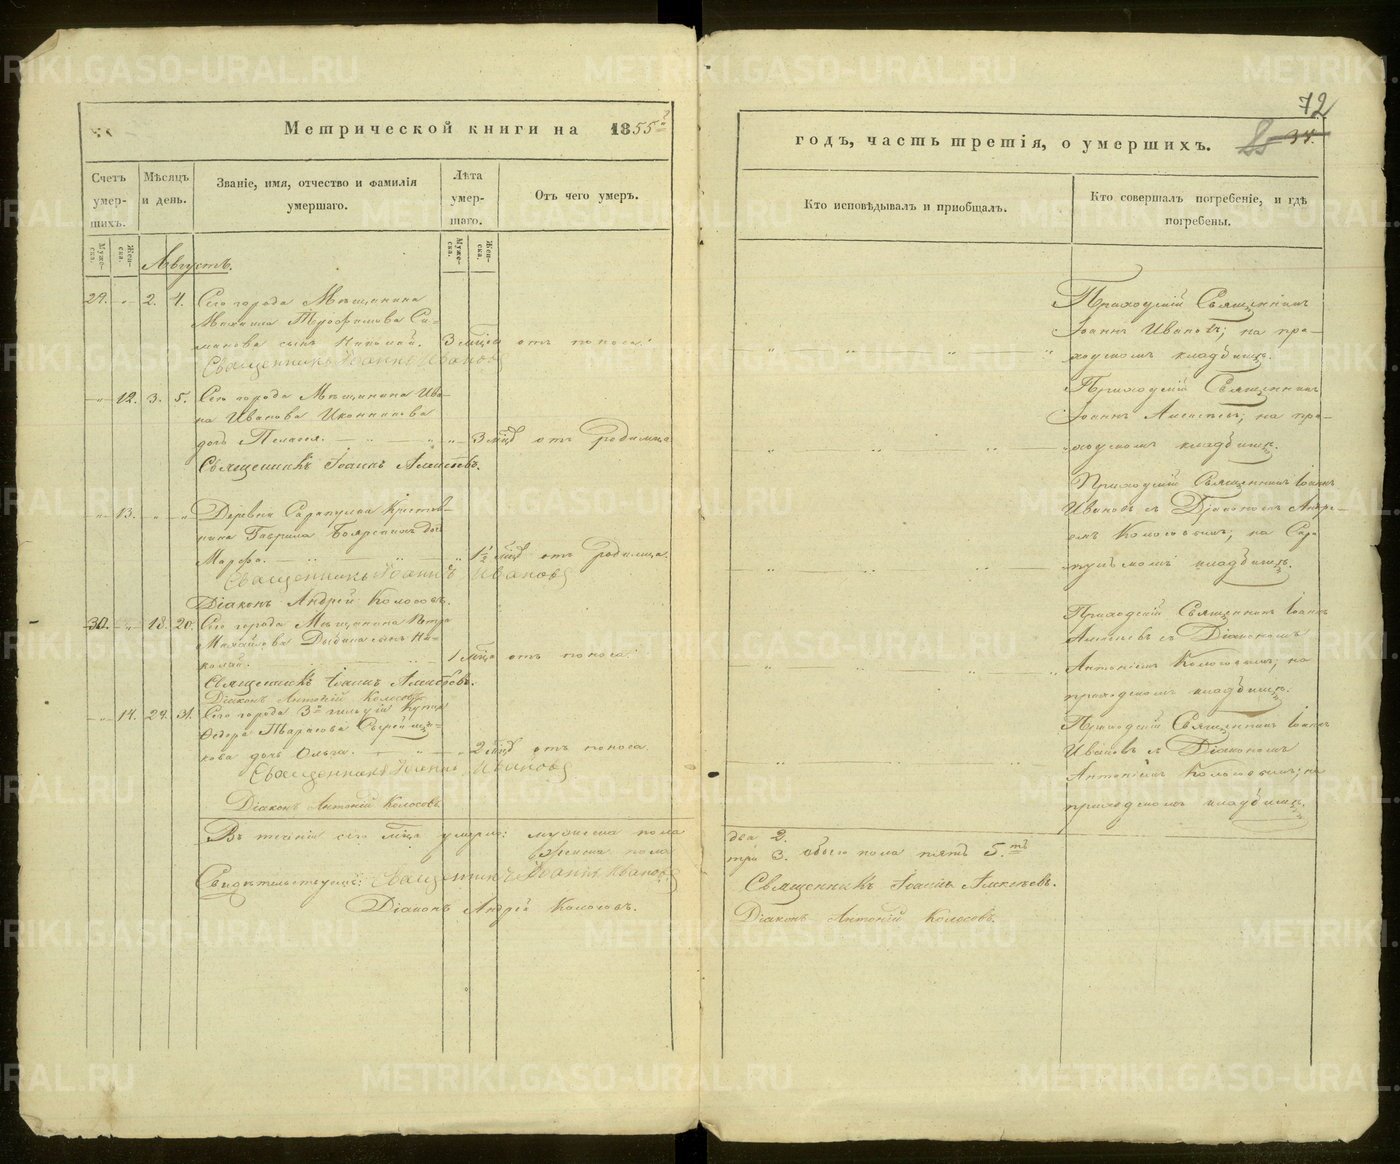 Метрической книги на 1855й
Счетъ умер-шихъ.
Мѣсяцъ и день.
Званіе, имя, отчество и фамилія умершаго.
Лѣта умер-шаго.
Отъ чего умеръ.
Муже-ска.
Жен-ска.
Муже-ска.
Жен-ска.
Августъ.
29. „ 2. 4. Сего города Мѣщанина
Михаила Трофимова Си-
манова сынъ Николай. 3 мѣсяца отъ поноса.
Священникъ Іоаннъ Ивановъ
„ 12. 3. 5. Сего города Мѣщанина Ива-
на Иванова Иконникова
дочь Пелагея. „ „ 3 мѣс. отъ родимца
Священникъ Іоаннъ Алексѣевъ.
„ 13. „ „ Деревни Сарапулка Крестья-
нина Гаврила Боярскихъ дочь
Марфа. „ 1½ мѣс. отъ родимца.
Священникъ Іоаннъ Ивановъ
Діаконъ Андрей Колосовъ.
30. „ 18. 20. Сего города Мѣщанина Петра
Михайлова сынъ Ни-
колай. 1 мѣсяца отъ поноса.
Священникъ Іоаннъ Алексѣевъ.
Діаконъ Антоній Колосовъ
„ 14. 29. 31. Сего города 3й гильдіи Купца
Ѳедора Тарасова
дочь Ольга. „ 2 мѣс. отъ поноса.
Священникъ Іоаннъ Ивановъ
Діаконъ Антоній Колосовъ.
Въ теченіи сего мѣсяца умерло: мужеска пола
женска пола
Свидѣтельствуемъ: Священникъ Іоаннъ Ивановъ
Діаконъ Андрей Колосовъ.
72
годъ, часть третія, о умершихъ.
37.
Кто исповѣдывалъ и пріобщалъ.
Кто совершалъ погребеніе, и гдѣ погребены.
Приходскій Священникъ
Іоаннъ Ивановъ; на при-
ходскомъ кладбищѣ.
Приходскій Священникъ
Іоаннъ Алексѣевъ; на при-
ходскомъ кладбищѣ.
Приходскій Священникъ Іоаннъ
Ивановъ съ Діакономъ Андре-
емъ Колосовымъ; на Сара-
пульскомъ кладбищѣ.
Приходскій Священникъ Іоаннъ
Алексѣевъ съ Діакономъ
Антоніемъ Колосовымъ; на
приходскомъ кладбищѣ.
Приходскій Священникъ Іоаннъ
Ивановъ съ Діакономъ
Антоніемъ Колосовымъ; на
приходскомъ кладбищѣ.
два 2.
три 3. обоего пола пять 5.ть
Священникъ Іоаннъ Алексѣевъ.
Діаконъ Антоній Колосовъ.
METRIKI.GASO-URAL.RU